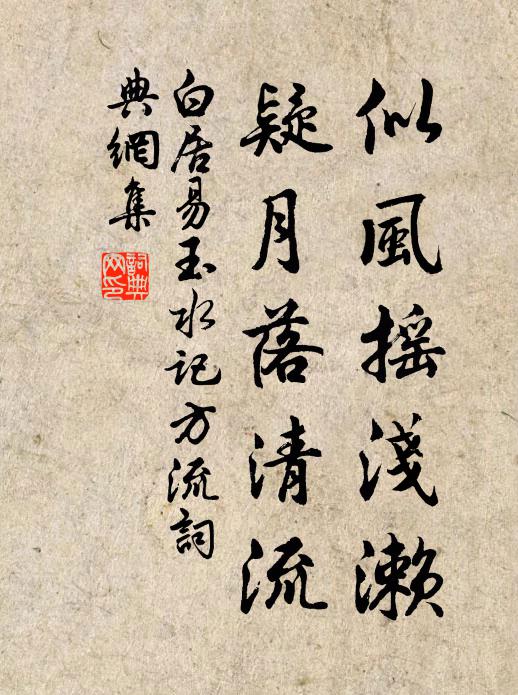 似風搖淺瀨
疑月落清流
白居易玉水记方流詞
典網集
詞典网印